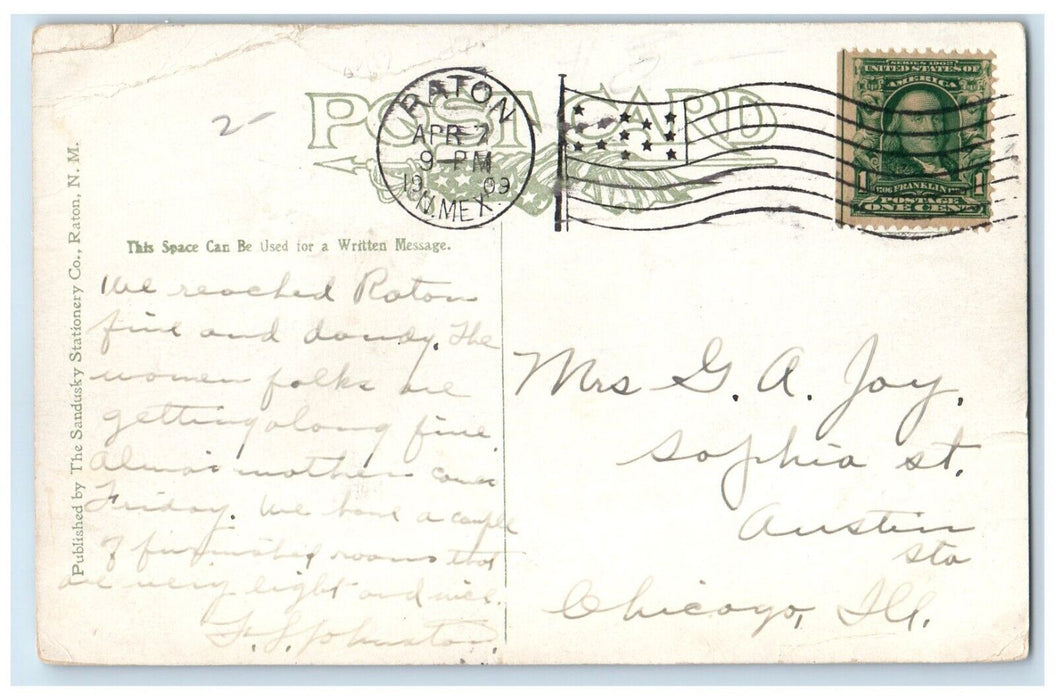 POST CARD
RATON
APR 7
9-PM
1909
N.MEX.
SERIES 1902
UNITED STATES OF
AMERICA
1 FRANKLIN 1
POSTAGE
ONE CENT
2-
Published by The Sandusky Stationery Co., Raton, N. M.
This Space Can Be Used for a Written Message.
We reached Raton
fine and dandy. The
women folks are
getting along fine.
Alma's mother comes
Friday. We have a couple
of furnished rooms that
are very light and nice.
F. S. Johnston.
Mrs G. A. Joy.
Sophia st.
Austin
Sta
Chicago, Ill.